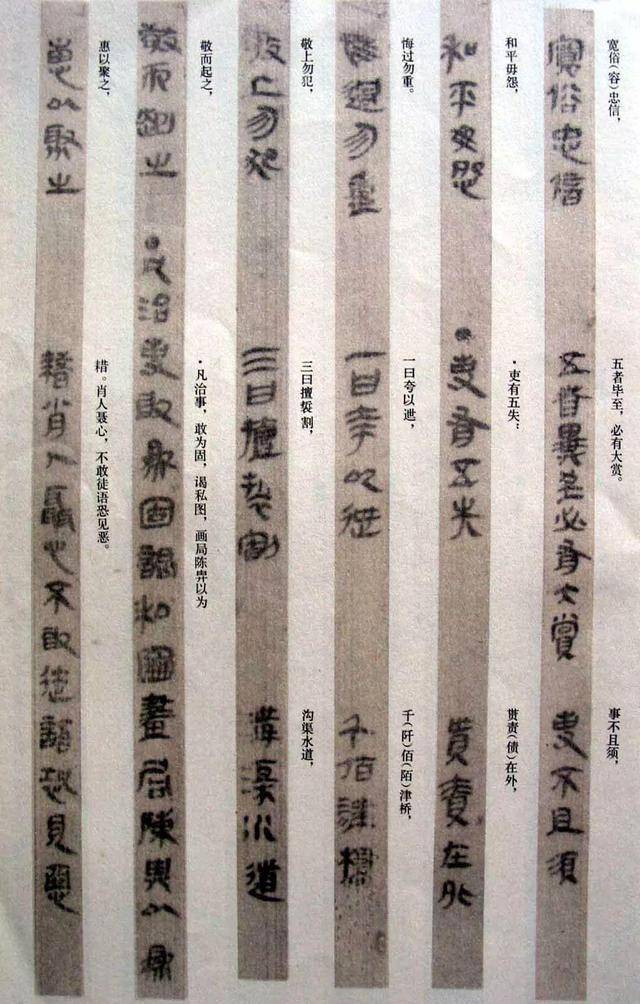 宽俗(容)忠信，
五者毕至，必有大赏。
事不且须，
寬俗忠信
五者畢至必有大賞
事不且須
和平毋怨，
·吏有五失：
贳责(债)在外，
和平毋怨
·吏有五失
貰責在外
悔过勿重。
一曰夸以迣，
千(阡)佰(陌)津桥，
悔過勿重
一曰夸以迣
千佰津橋
敬上勿犯，
三曰擅裚割，
沟渠水道，
敬上勿犯
三曰擅裚割
溝渠水道
敬而起之，
·凡治事，敢为固，谒私图，画局陈畀以为
敬而起之
·凡治事敢為固謁私圖畫局陳畀以為
惠以聚之，
耤。肖人聂心，不敢徒语恐见恶。
惠以聚之
耤肖人聶心不敢徒語恐見惡